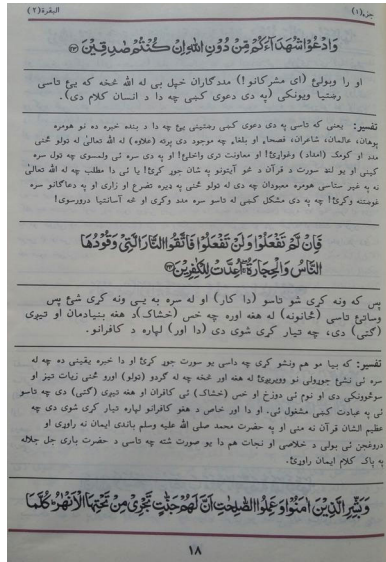 جزء(١) البقرة(٢)
وَادْعُوْا شُهَدَآءَكُمْ مِّنْ دُوْنِ اللّٰهِ اِنْ كُنْتُمْ صٰدِقِيْنَ ﴿٢٣﴾
او را وبولئ (ای مشرکانو!) مددګاران خپل بې له الله څخه که یئ تاسې
رښتیا ویونکي (په دې دعوی کښې چه دا د انسان کلام دی).
تفسیر: یعنې که تاسې په دې دعوی کښې رښتیني یئ چه دا د بنده خبره ده نو هومره
پوهان، عالمان، شاعران، فصحاء او بلغاء چه موجود دي پرته (علاوه) له الله تعالیٰ له تولو څنې
مدد او کومک (امداد) وغواړئ! او معاونت ترې واخلئ! او په دې سره ئې ولمسوی چه تول سره
کیني او یو لنډ سورت د قرآن د څو آیتونو په شان جوړ کړي! یا ئې دا مطلب چه له الله تعالیٰ
نه په غیر ستاسې هومره معبودان چه دي له تولو څنې په ډیره تضرع او زارۍ او په دعاګانو سره
غوښتنه وکړئ! چه په دې مشکل کښې له تاسو سره مدد وکړي او څه آسانتیا درورسوی!
فَاِنْ لَّمْ تَفْعَلُوْا وَلَنْ تَفْعَلُوْا فَاتَّقُوا النَّارَ الَّتِيْ وَقُوْدُهَا
النَّاسُ وَالْحِجَارَةُ ۖ اُعِدَّتْ لِلْكٰفِرِيْنَ ﴿٢٤﴾
پس که ونه کړی شو تاسو (دا کار) او له سره به یې ونه کړی شئ پس
وساتئ تاسې (ځانونه) له هغه اوره چه خس (خشاک)د هغه بنیادمان او تیږي
(ګټي) دي، چه تیار کړی شوی دی (دا اور) لپاره د کافرانو.
تفسیر: که بیا مو هم ونشو کړی چه داسې یو سورت جوړ کړئ او دا خبره یقیني ده چه له
سره ئې نشئ جوړولی نو وویریږئ له هغه اور څخه چه له ګردو (تولو) اورو څنې زیات تیز او
سوځوونکی دی او نوم ئې دوزخ او خس (خشاک) ئې کافران او هغه تیږي (ګټي) دي چه تاسو
ئې په عبادت کښې مشغول ئې. او دا اور خاص د هغو کافرانو لپاره تیار کړی شوی دی چه
عظیم الشان قرآن نه مني او په حضرت محمد صلی الله علیه وسلم باندې ایمان نه راوړي او
دروغجن ئې بولی د خلاصی او نجات هم دا یو صورت شته چه تاسې د حضرت باري جل جلاله
په پاک کلام ایمان راوړئ.
وَبَشِّرِ الَّذِيْنَ اٰمَنُوْا وَعَمِلُوا الصّٰلِحٰتِ اَنَّ لَهُمْ جَنّٰتٍ تَجْرِيْ مِنْ تَحْتِهَا الْاَنْهٰرُ ؕ كُلَّمَا
١٨